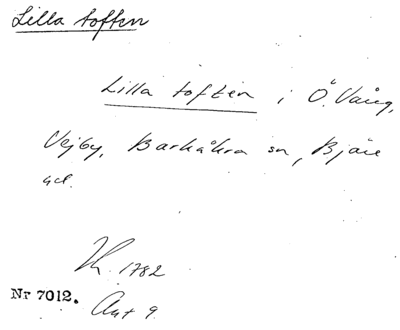 Lilla toften
Lilla toften i Ö. Vång,
Vejby, Barkåkra sn, Bjäre
hd.
Th. 1782
Nr 7012.
Akt 9